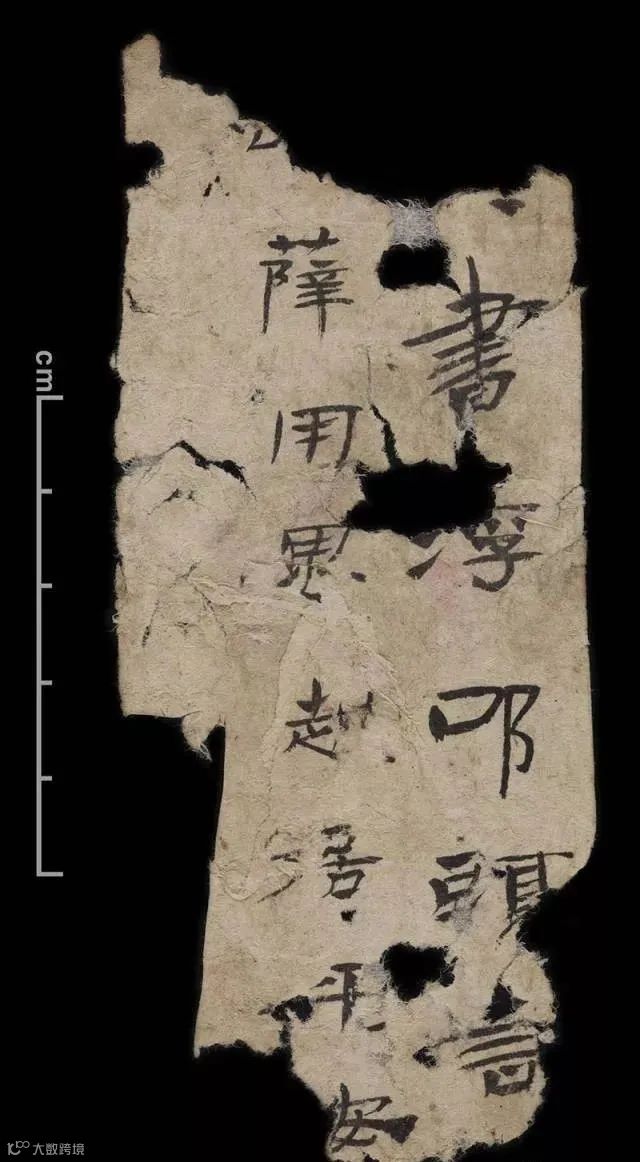 書浮叩頭言
薩用思起居平安
cm
大数跨境